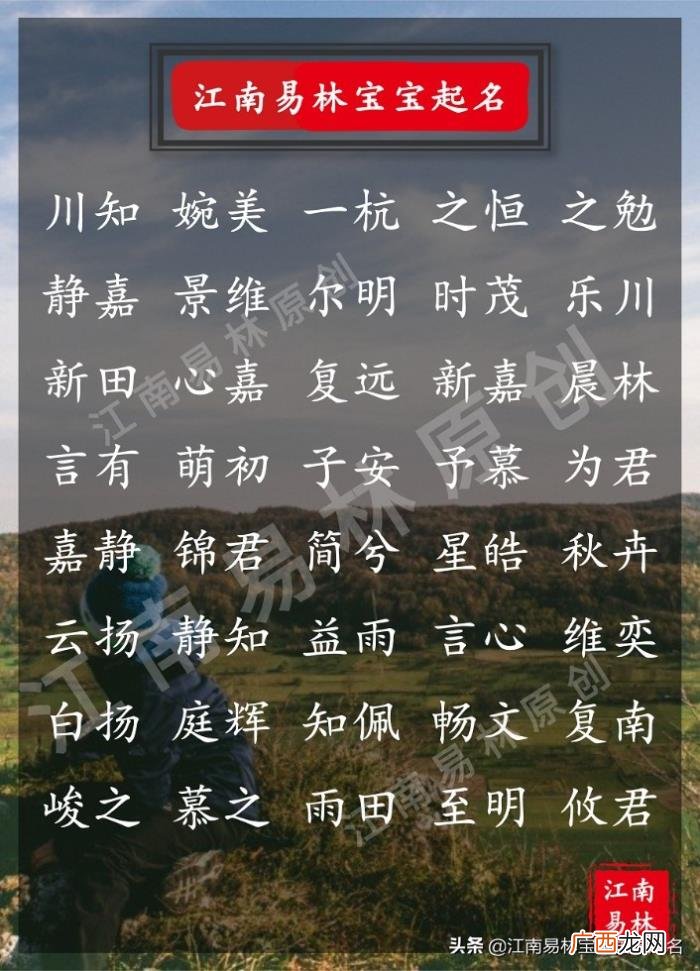 江南易林宝宝起名
川知 婉美 一杭 之恒 之勉
静嘉 景维 尔明 时茂 乐川
新田 心嘉 复远 新嘉 晨林
言有 萌初 子安 予慕 为君
嘉静 锦君 简兮 星皓 秋卉
云扬 静知 益雨 言心 维奕
白扬 庭辉 知佩 畅文 复南
峻之 慕之 雨田 至明 攸君
江南易林原创
江南易林原创
江南易林原创
江南
易林
头条 @江南易林宝
广西龙网
名